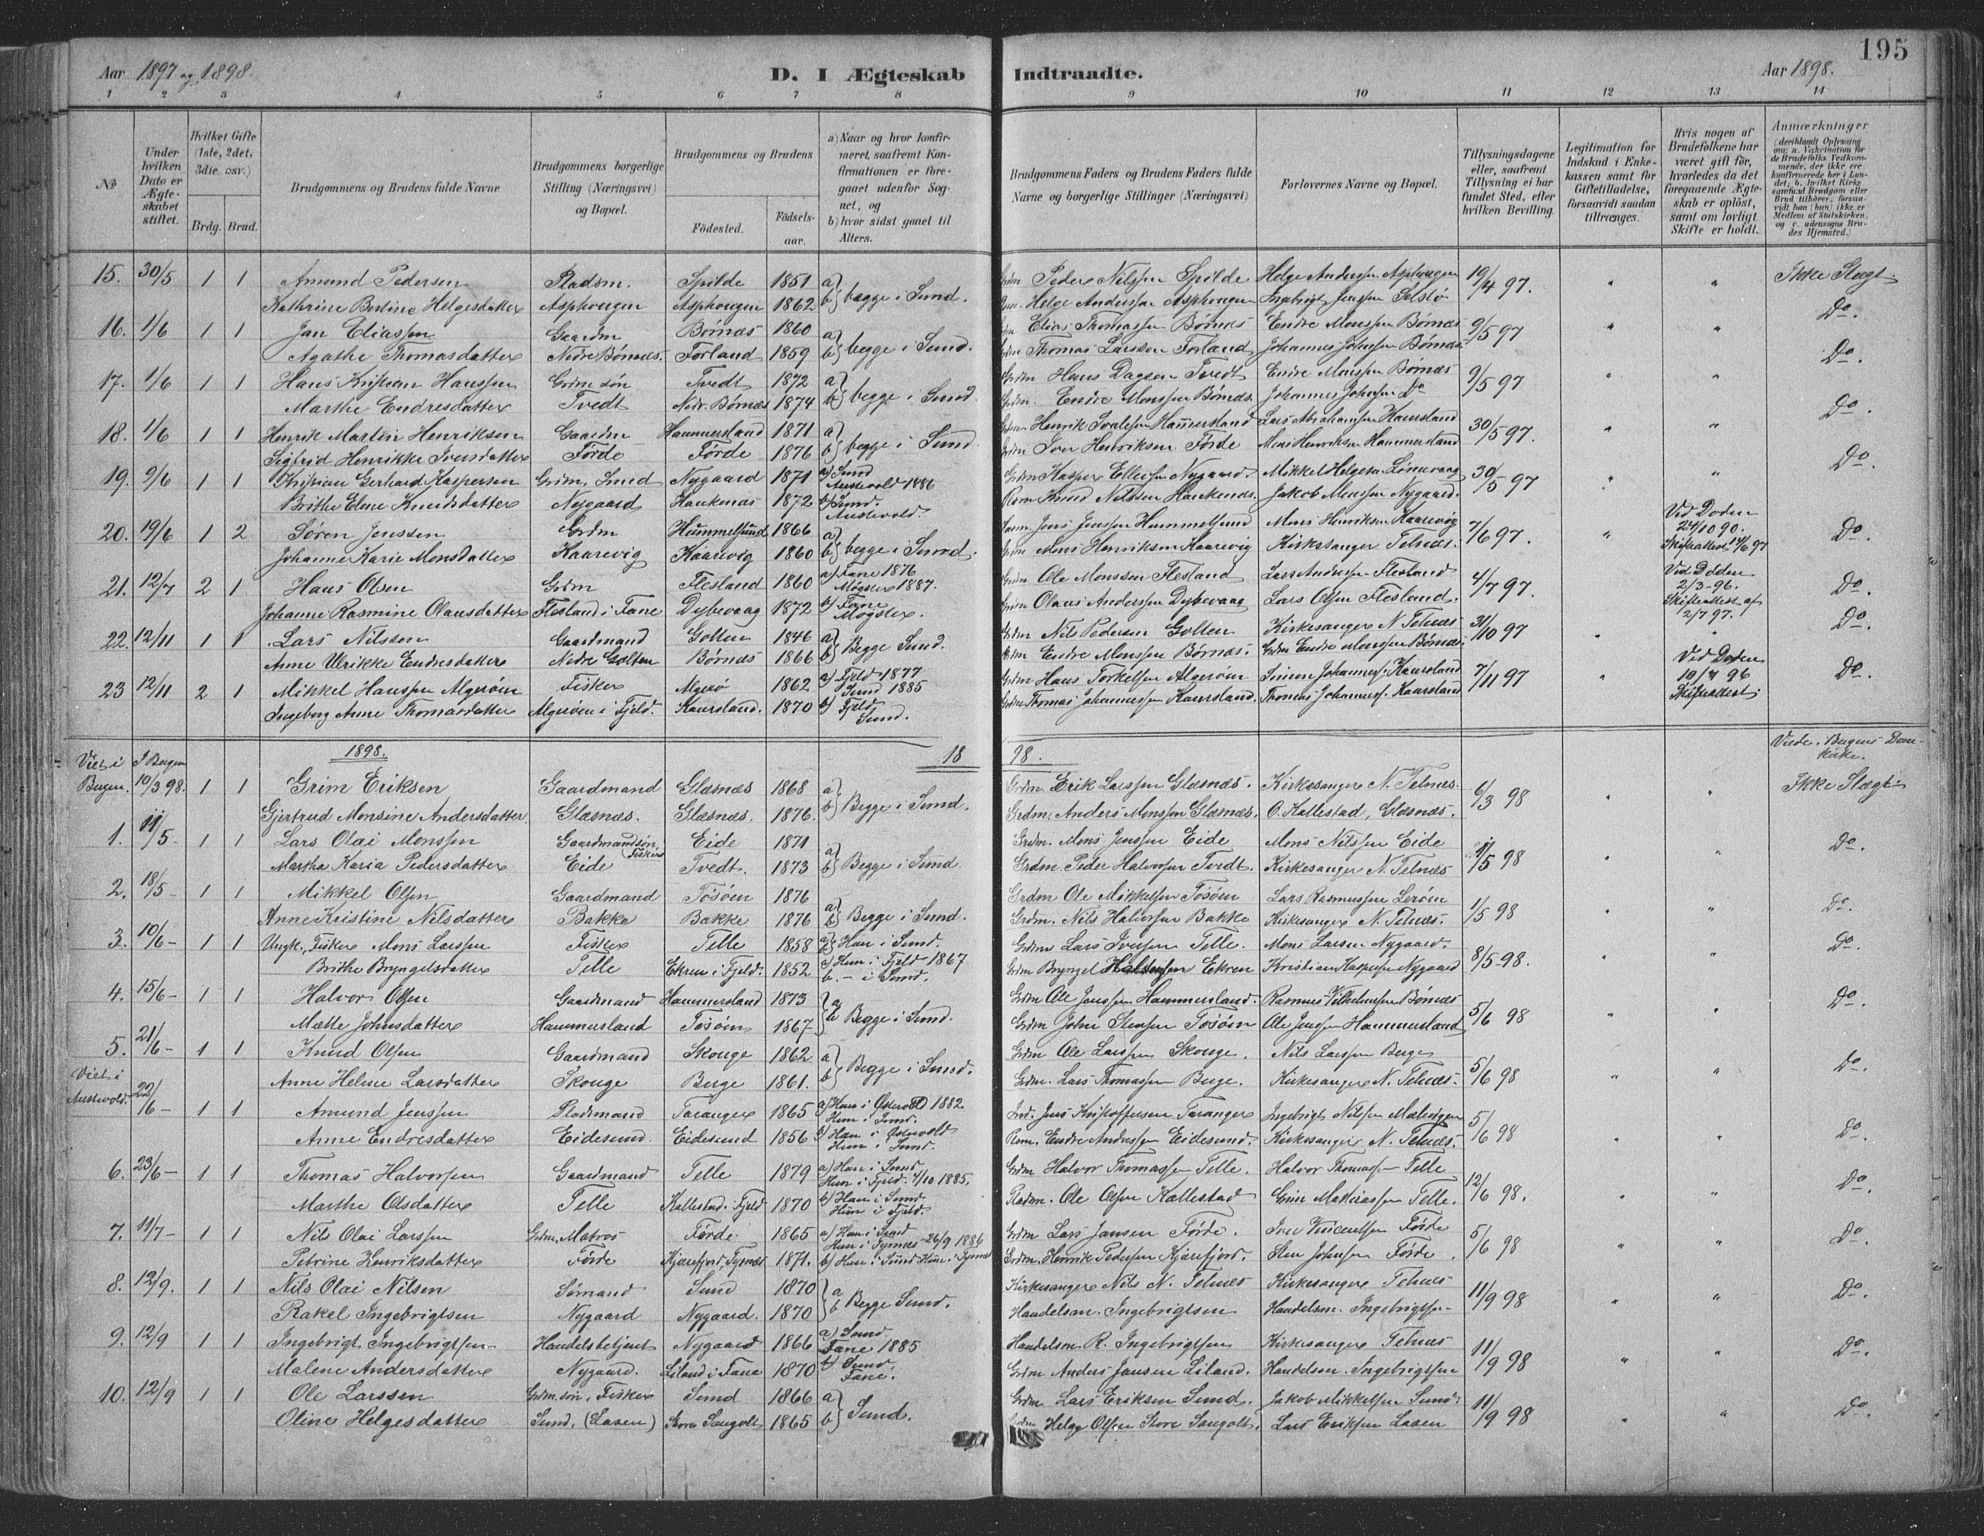 195
Aar 1897 og 1898. D. I Ægteskab Indtraadte. Aar 1898.
1 2 3 4 5 6 7 8 9 10 11 12 13 14
№
Under hvilken Dato er Ægteskabet stiftet.
Hvilket Gifte (1ste, 2det, 3die osv.)
Brdg. Brud.
Brudgommens og Brudens fulde Navne
Brudgommens borgerlige Stilling (Næringsvei) og Bopæl.
Brudgommens og Brudens
Födested. Födselsaar.
a) Naar og hvor konfirmeret, saafremt Konfirmationen er foregaaet udenfor Sognet, og
b) hvor sidst gaaet til Alters.
Brudgommens Faders og Brudens Faders fulde Navne og borgerlige Stillinger (Næringsvei)
Forlovernes Navne og Bopæl.
Tillysningsdagene eller, saafremt Tillysning ei har fundet Sted, efter hvilken Bevilling.
Legitimation for Indskud i Enkekassen samt for Giftetilladelse, forsaavidt saadan tiltrænges.
Hvis nogen af Brudefolkene har været gift för, hvorledes da det foregaaende Ægteskab er oplöst, samt om lovligt Skifte er holdt.
Anmærkninger (deriblandt Oplysning om: a. Vakcination for de Brudefolks Vedkommende, der ikke ere konfirmerede her i Landet; b. hvilket Kirkesamfund Brudgom eller Brud tilhörer, forsaavidt han (hun) ikke er Medlem af Statskirken, og c. udensogns Brudes Hjemsted.)
15. 30/5 1 1 Amund Pedersen Pladsm. Spilde 1851 a) begge i Sund. Peder Nilssen Spilde Helge Anderssen Asphougen 19/4 97. " " Ikke Slægt
Kathrine Bertine Helgesdatter Asphougen Asphougen 1862 b) Helge Anderssen Asphougen Ingebrigt Jenssen Selstø
16. 1/6 1 1 Jan Eliassen Gaardm Børnæs 1860 a) begge i Sund. Elias Thomassen Børnæs Endre Monssen Børnæs 9/5 97 " " Do.
Agathe Thomasdatter Nedre Børnæs. Forland 1859 b) Grdm Thomas Larssen Forland Johannes Johnsen Børnæs.
17. 1/6 1 1 Hans Kristian Hanssen Grdm søn Tvedt 1872 a) begge i Sund. Grdm Hans Dagsen Tvedt Endre Monssen Børnæs 9/5 97 " " Do.
Marthe Endresdatter Tvedt Nedr. Børnæs 1874 b) Grdm. Endre Monssen Børnæs. Johannes Johnsen Do
18. 1/6 1 1 Henrik Martin Henriksen Gaardm Hammersland 1871 a) begge i Sund. Henrik Hammersland Lars Abrahamsen Hamsland 30/5 97. " " Do.
Sigtrid Henrikke Iversdatter Förde Förde 1876 b) Grdm Iver Henriksen Förde Mons Henriksen Hammersland
19. 9/6 1 1 Kristian Gerhard Kaspersen Grdm, Smed Nygaard 1871 a) Sund Austevold 1886 Grdm Kasper Ellefsen Nygaard. Mikkel Helgesen 30/5 97 " " Do.
Brithe Elene Knudsdatter Nygaard Haukenæs 1872 b) Sund. Austevold. Knud Nilssen Haukenæs. Jakob Monssen Nygaard.
20. 19/6 1 2 Søren Jenssen Grdm Hummelsund 1866 a) begge i Sund. Jens Jenssen Hummelsund Mons Henriksen Kaarevig 7/6 97. " Ved Døden 24/10 90. Do.
Johanne Karie Monsdatter Kaarevig Kaarevig 1860 b) Grdm Mons Henriksen Kaarevig Kirkesanger Telnæs. Skifteattest 11/6 97
21. 12/7 2 1 Hans Olsen Grdm Flesland 1860 a) Fane 1876 Møgster 1887. Grdm Ole Monssen Flesland Lars Andersen Flesland 4/7 97. " Ved Døden 2/3-96. Do.
Johanne Rasmine Olausdatter Flesland i Fane Dybevaag 1872 b) Fane Møgster. Grdm Olaus Anderssen Dybevaag Lars Olsen Flesland. Skifteattest af 2/7 97.
22. 12/11 1 1 Lars Nilssen Gaardmand Golten 1846 a) Begge Sund. Grdm Nils Pedersen Golten Kirkesanger N. Telnæs 31/10 97 " " Do.
Anne Ulrikke Endresdatter Nedre Golten Børnæs 1866 b) Grdm Endre Monssen Børnæs. Grdm Endre Monssen Børnæs.
23 12/11 2 1 Mikkel Hanssen Algerøin Fisker Algerø 1862 a) Fjeld 1877 Sund 1885 Grdm Hans Torkelsen Algerøin Simon Johannessen Kaursland 7/11 97 " Ved Døden 10/4 96 Do.
Ingeborg Anne Thomasdatter Algerøen i Fjeld. Kaursland. 1870 b) Fjeld Sund. Grdm Thomas Johannessen Kaursland. Thomas Johannessen Kaursland. Skifteattest
1898. 18 98.
Viet i Bergen. I Bergen 10/3 98. 1 1 Grim Eriksen Gaardmand Glæsnæs 1868 a) Begge i Sund. Grdm. Erik Larssen Glæsnæs. Kirkesanger N. Telnæs. 6/3 98 " " Viede i Bergens Domkirke. Ikke Slægt
Gjertrud Monsine Andersdatter Glæsnæs. Glæsnæs. 1876. b) Grdm. Anders Monssen Glæsnæs. O. Hallestad, Glæsnæs.
1. 11/5 1 1 Lars Olai Monssen Gaardmandsøn, Fisker Eide 1871 a) Begge i Sund. Grdm. Mons Jenssen Eide Mons Nilssen Eide 1/5 98 " " Do.
Martha Karia Pedersdatter Eide Tvedt. 1873 b) Grdm. Peder Halvorssen Tvedt. Kirkesanger N. Telnæs
2. 18/5 1 1 Mikkel Olsen Gaardmand Tösöin 1876 a) Begge i Sund. Grdm Ole Mikkelsen Tösöin Lars Rasmussen Lerøin 1/5 98 " " Do.
Anne Kristine Nilsdatter Bakke Bakke 1876 b) Grdm. Nils Halvorssen Bakke Kirkesanger N. Telnæs.
3. 10/6 - 1 1 Ungk., Fisker Mons Larssen Fisker Telle 1858 a) Han i Sund. Grdm Lars Iversen Telle. Mons Larsen Nygaard. 8/5 98. " " Do.
Brithe Bryngelsdatter Telle Ekren i Fjeld. 1852 a) Hun i Fjeld 1867 b. - i Sund. Grdm Bryngel Ekren Kristian Kaspersen Nygaard
4. 15/6 - 1 1 Halvor Olsen Gaardmand Hammersland 1873 a) Begge i Sund. Grdm Ole Jenssen Hammersland. Rasmus Vilhelmsen Børnæs 5/6 98 " " Do.
Mætte Johnsdatter Hammersland Tösöin 1867 b) Grdm John Stenssen Tösöin Ole Jenssen Hammersland
5. 21/6 - 1 1 Knud Olsen Gaardmand Skouge 1862 a) Begge i Sund. Grdm Ole Larssen Skouge. Nils Larssen Berge 5/6 98 " " Do.
Anne Helene Larsdatter Skouge Berge 1861. b) Grdm. Lars Thomassen Berge. Kirkesanger N. Telnæs.
Viet i Austevold. 22/6 - 1 1 Amund Jenssen Pladsmand Taranger 1865 a) Han i Østervold 1882 Hun i Sund. Jens Kristoffersen Taranger Ingebrigt Nilssen 5/6 98 " " Do.
Anne Endresdatter Eidesund. Eidesund 1856 b) Han i Østervold Hun i Sund. Endre Anderssen Eidesund. Kirkesanger N. Telnæs.
6. 23/6 - 1 1 Thomas Halvorssen Gaardmand Telle 1879 a) Han i Sund Hun i Fjeld. 4/10 1885. Grdm Halvor Thomassen Telle. Halvor Thomassen Telle 12/6 98. " " Do.
Marthe Olsdatter Telle Kallestad i Fjeld 1870 b) Han i Sund Hun i Fjeld. Pladsm. Ole Olsen Kallestad Telle.
7. 11/7 - 1 1 Nils Olai Larssen Grdm, Matros Førde 1865 a) Han i Sund Hun i Tysnæs 26/9 1886 Grdm Lars Jansen Førde. Iver Vincentsen Førde 5/6 98 " " Do.
Petrine Henriksdatter Førde Tysnæs 1871. b) Han i Sund Hun i Tysnæs Grdm. Henrik Pedersen Sten Johnsen Førde.
8. 12/9. 1 1 Nils Olai Nilsen Sømand Sund 1870 a) Begge Sund. Kirkesanger Nils N. Telnæs Kirkesanger Telnæs 11/9 98 " " Do.
Rakel Ingebrigtsen Nygaard Nygaard. 1870 b) Handelsm. Ingebrigtsen Handelsm. Ingebrigtsen
9. 12/9 1 1 Ingebrigt Ingebrigtsen Handelsbetjent Nygaard 1866 a) Sund. Fane 1885 Handelsm R. Ingebrigtsen Kirkesanger Telnæs 11/9 98 " " Do.
Malene Andersdatter Nygaard. Liland i Fane 1870 b) Sund. Fane. Grdm Anders Jansen Liland. Handelsm. Ingebrigtsen
10. 12/9 1 1 Ole Larssen Grdm. søn, Fisker Sund 1866 a) Sund. Grdm Lars Eriksen Sund Jakob Mikkelsen Sund. 11/9 98 " " Do.
Oline Helgesdatter Sund, (Lasen) Store Sangolt 1865 b) Grdm Helge Olsen Store Sangolt. Lars Eriksen Lasen